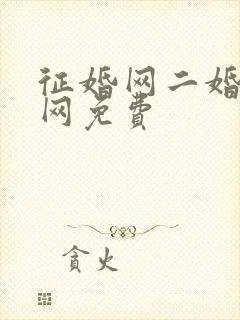 征婚网二婚
网免费
貪火